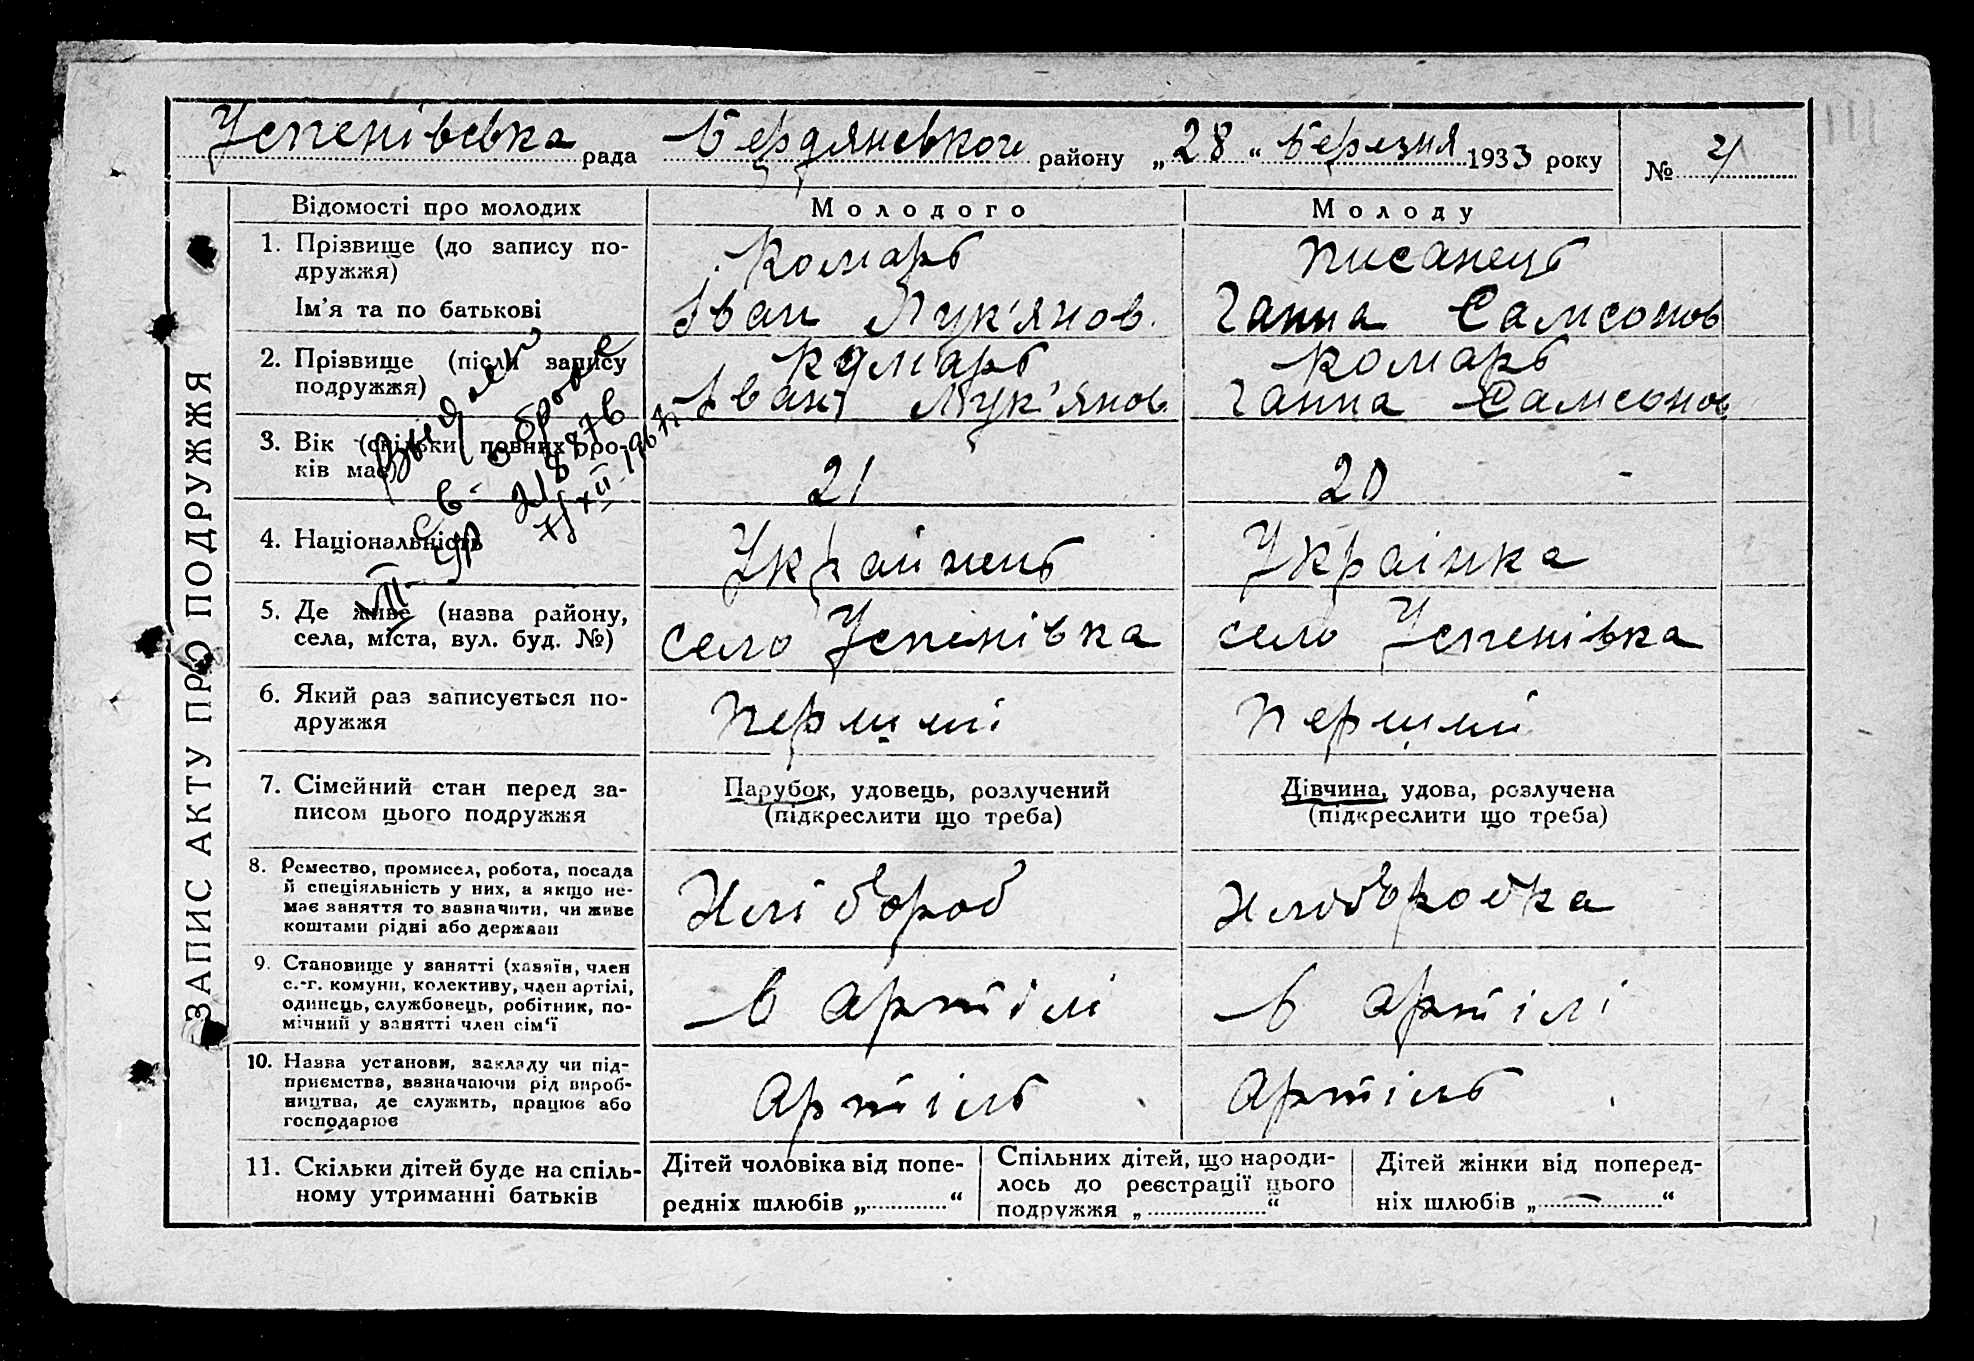 Успенівська рада Бердянського району „28“ Березня 1933 року №
ЗАПИС АКТУ ПРО ПОДРУЖЖЯ
Відомості про молодих
Молодого
Молоду
1. Прізвище (до запису по-
дружжя)
Ім'я та по батькові
Комарь
Іван Лук'янов.
Писанець
Ганна Самсонов
2. Прізвище (після запису
подружжя)
Комарь
Іван Лук'янов
Комарь
Ганна Самсонов
3. Вік (скільки повних ро-
ків має)
21
20
4. Національність
Украйнець
Украінка
5. Де живе (назва району,
села, міста, вул. буд. №)
село Успенівка
село Успенівка
6. Який раз записується по-
дружжя
перший
перший
7. Сімейний стан перед за-
писом цього подружжя
Парубок, удовець, розлучений
(підкреслити що треба)
Дівчина, удова, розлучена
(підкреслити що треба)
8. Ремество, промисел, робота, посада
й спеціяльність у них, а якщо не-
має заняття то зазначити, чи живе
коштами рідні або держави
Хліборob
Хліборобка
9. Становище у занятті (хазяїн, член
с.-г. комуни, колективу, член артілі,
одинець, службовець, робітник, по-
мічний у занятті член сім'ї
в артілі
в артілі
10. Назва установи, закладу чи під-
приємства, зазначаючи рід вироб-
ництва, де служить, працює або
господарює
Артіль
Артіль
11. Скільки дітей буде на спіль-
ному утриманні батьків
Дітей чоловіка від попе-
редніх шлюбів „..............“
Спільних дітей, що народи-
лось до реєстрації цього
подружжя „..............“
Дітей жінки від поперед-
ніх шлюбів „.....—.....“